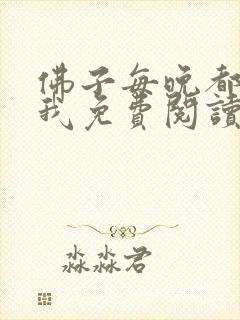 佛子每晚都
我免費閱讀
淼淼君